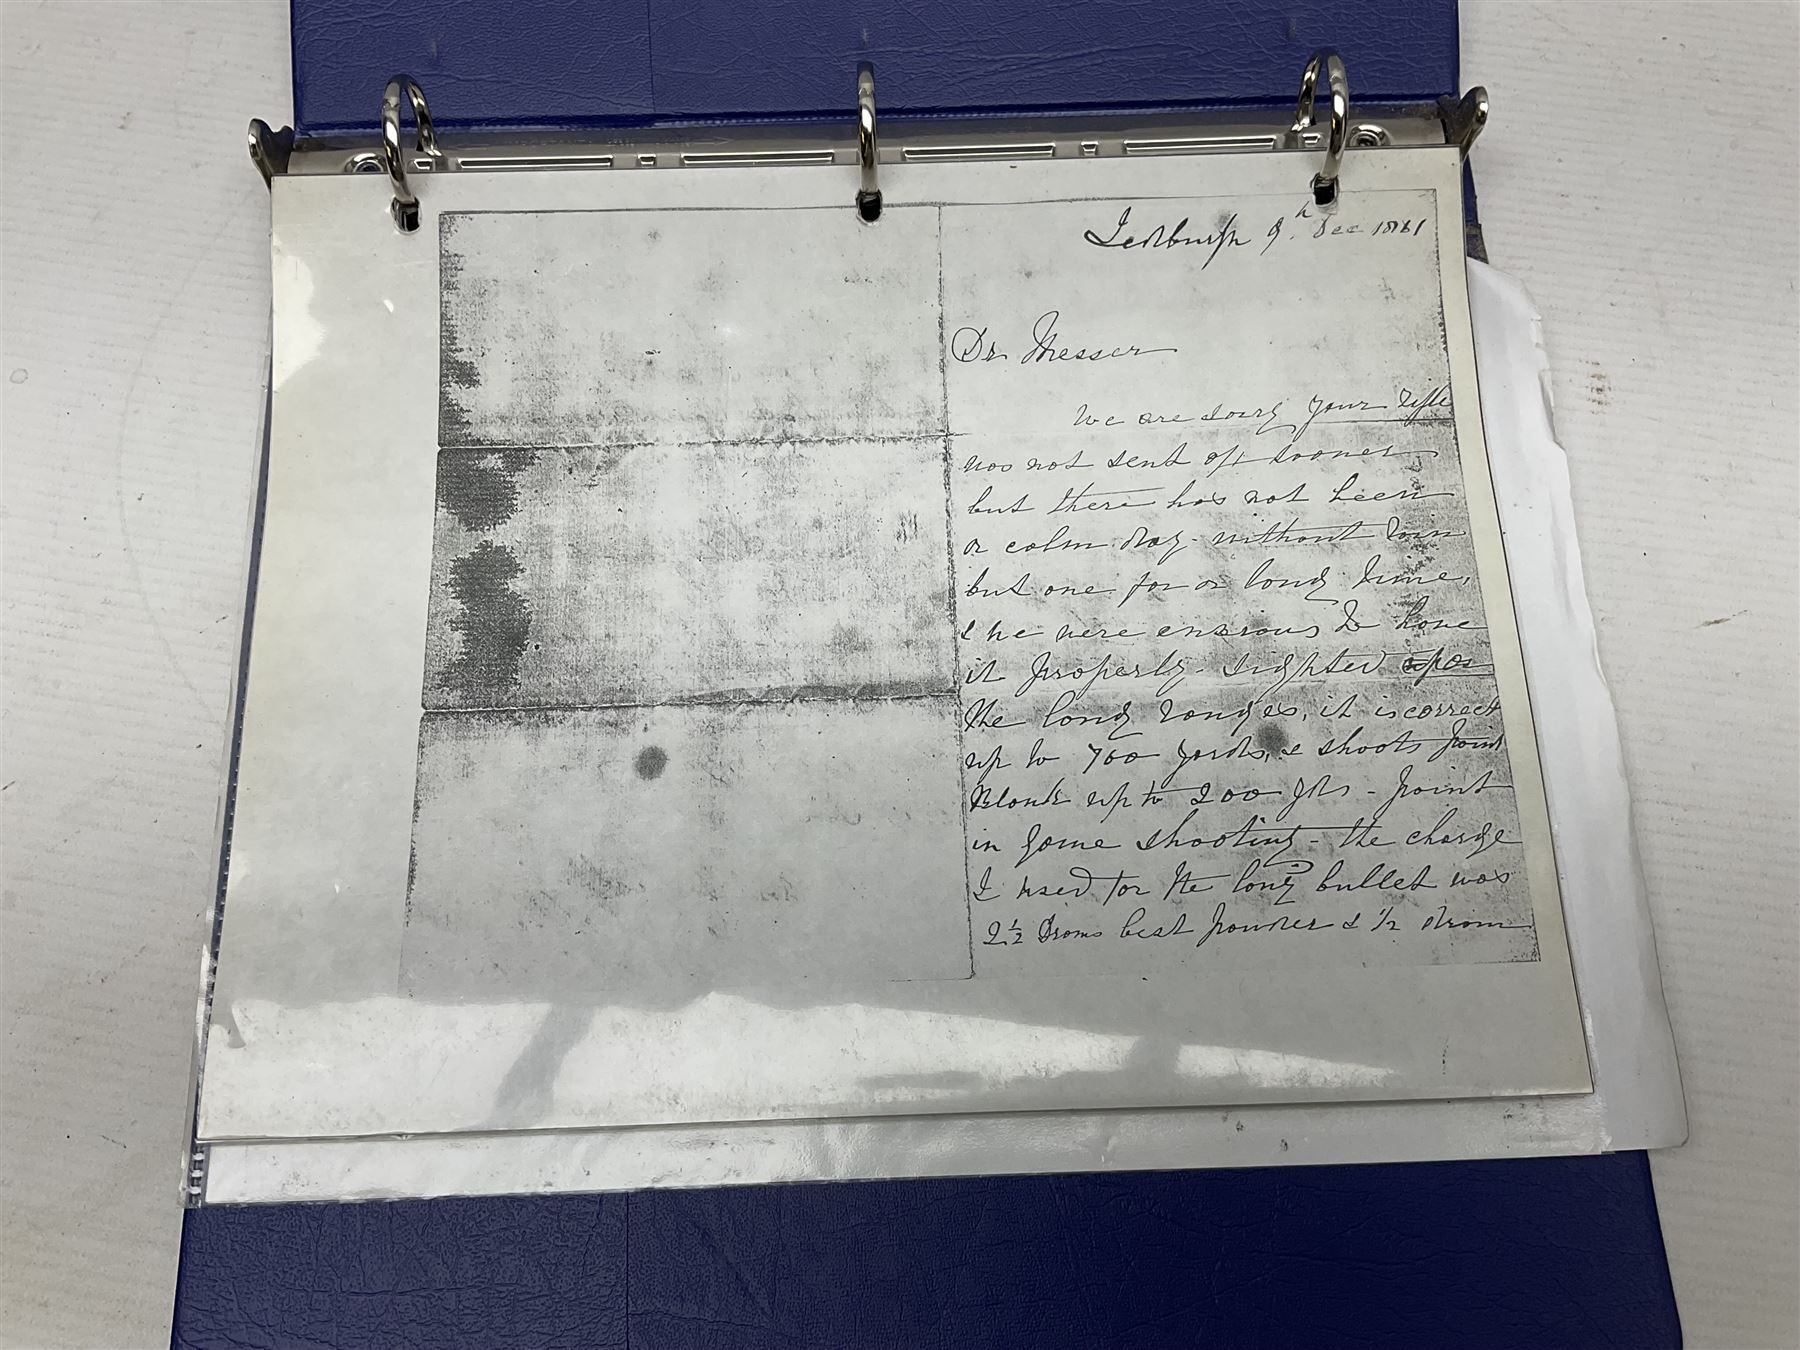 Jedburgh 9th Dec 1861
Dr Messer
We are sorry your rifle
was not sent off sooner
but there has not been
a calm day without rain
but one for a long time,
& we were anxious to have
it properly sighted upon
the long ranges, it is correct
up to 700 yards, & shoots point
Blank up to 200 yds - point
in game shooting - the charge
I used for the long bullet was
2½ Drams best powder & ½ dram